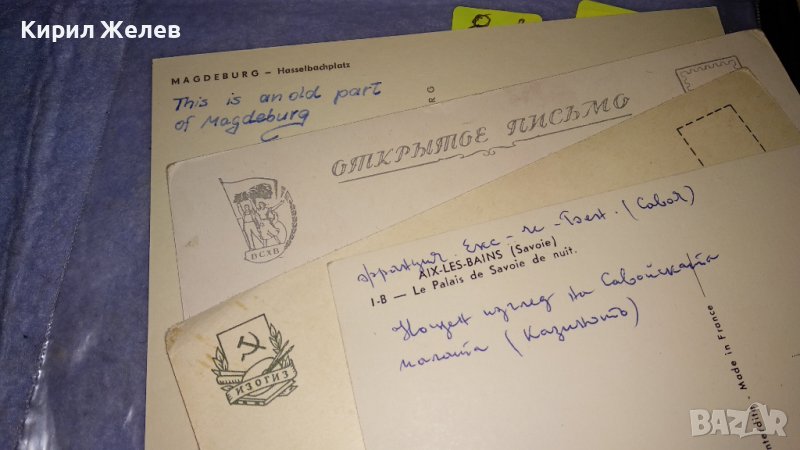 Кирил Желев
MAGDEBURG – Hasselbachplatz
This is an old part
of Magdeburg
ОТКРЫТОЕ ПИСЬМО
ВСХВ
ИЗОГИЗ
Франция. Екс-ле-Бен. (Савоя)
AIX-LES-BAINS (Savoie)
I-B — Le Palais de Savoie de nuit.
Нощен изглед на Савойската
палата (Казиното)
Made in France
BAZAR